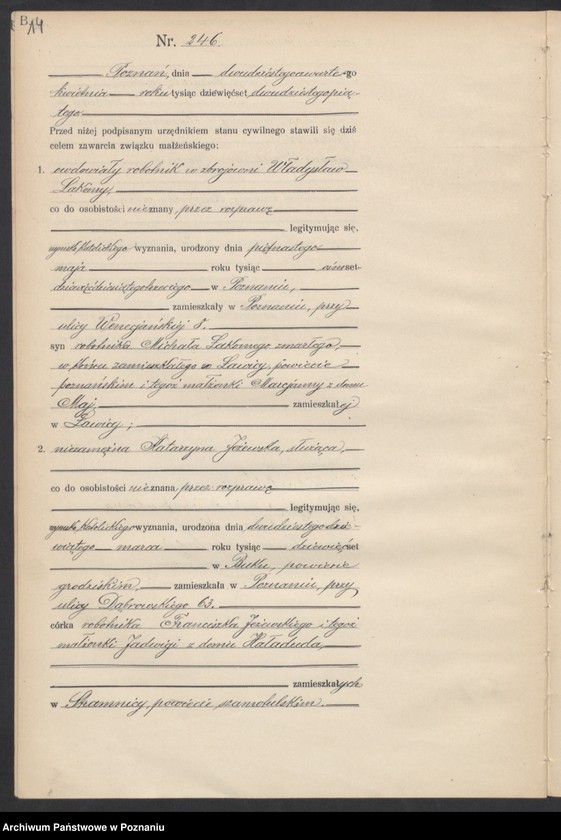 B 14
Nr. 246.
Poznań, dnia dwudziestego czwartego
kwietnia roku tysiąc dziewięćset dwudziestego pią-
tego
Przed niżej podpisanym urzędnikiem stanu cywilnego stawili się dziś
celem zawarcia związku małżeńskiego:
1. owdowiały robotnik w zbrojowni Władysław
Łakomy,
co do osobistości nieznany przez rozprawę
legitymując się,
rzymsk. katolickiego wyznania, urodzony dnia piętnastego
maja roku tysiąc ośmset
dziewięćdziesiątego trzeciego w Poznaniu,
zamieszkały w Poznaniu, przy
ulicy Wenecjańskiej 8.
syn robotnika Michała Łakomego zmarłego
w końcu zamieszkałego w Ławicy, powiecie
poznańskim i tegoż małżonki Marcjanny z domu
Maj, zamieszkałej
w Ławicy;
2. niezamężna Katarzyna Jeżewska, służąca,
co do osobistości nieznana przez rozprawę
legitymując się,
rzymsk. katolickiego wyznania, urodzona dnia dwudziestego dzie-
wiątego marca roku tysiąc dziewięćset
w Buku, powiecie
grodziskim, zamieszkała w Poznaniu, przy
ulicy Dąbrowskiego 63.
córka robotnika Franciszka Jeżewskiego i tegoż
małżonki Jadwigi z domu Hataduda,
zamieszkałych
w powiecie szamotulskim.
Archiwum Państwowe w Poznaniu